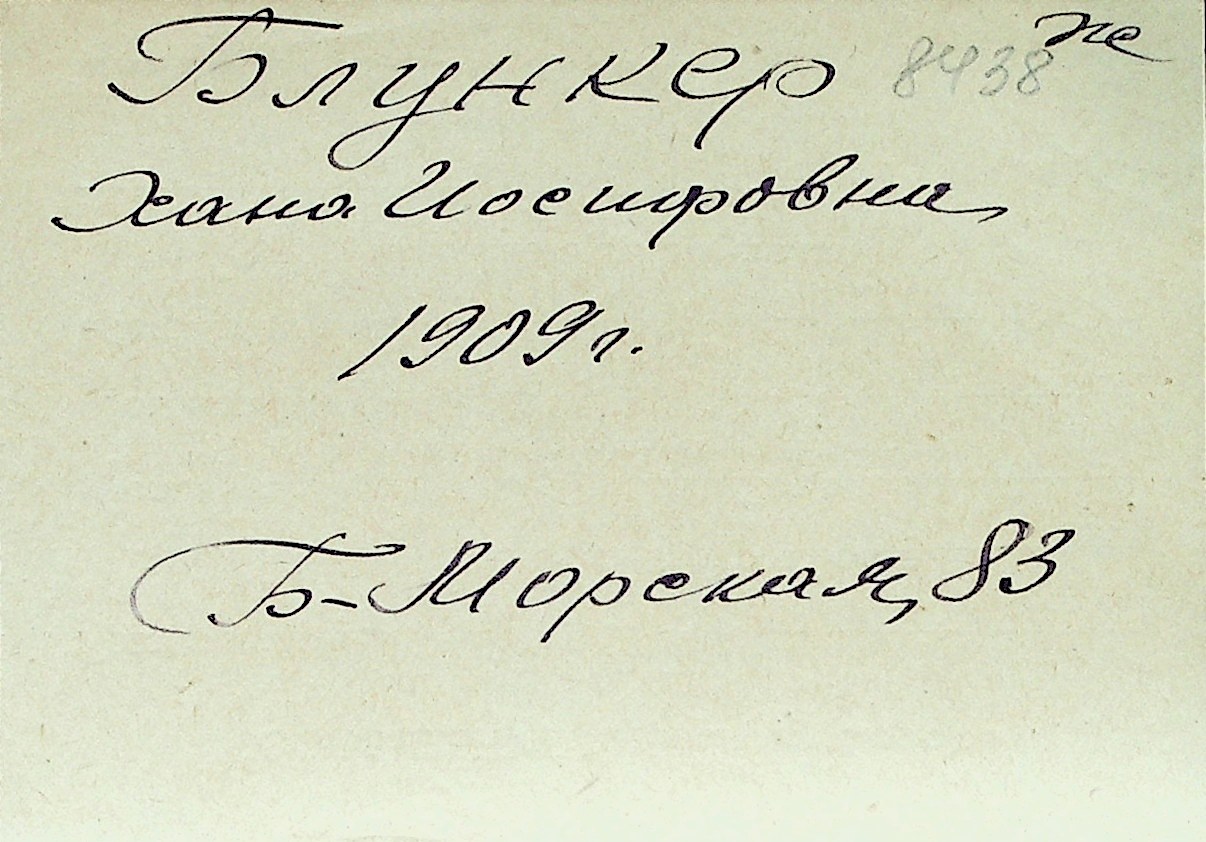 Блункер 8438 же
Хана Иосифовна
1909 г.
Б-Морская, 83